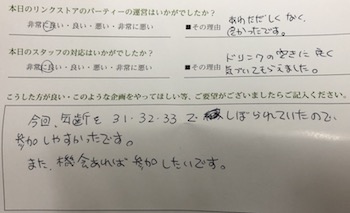 本日のリンクストアのパーティーの運営はいかがでしたか？
非常に良い・良い・悪い・非常に悪い
■その理由
あわただしくなく、
良かったです。
本日のスタッフの対応はいかがでしたか？
非常に良い・良い・悪い・非常に悪い
■その理由
ドリンクの空きに良く
気づいてもらえました。
こうした方が良い・このような企画をやってほしい等、ご要望がございましたらご記入ください。
今回、年齢を31・32・33でしばられていたので、
参加しやすかったです。
また、機会あれば参加したいです。